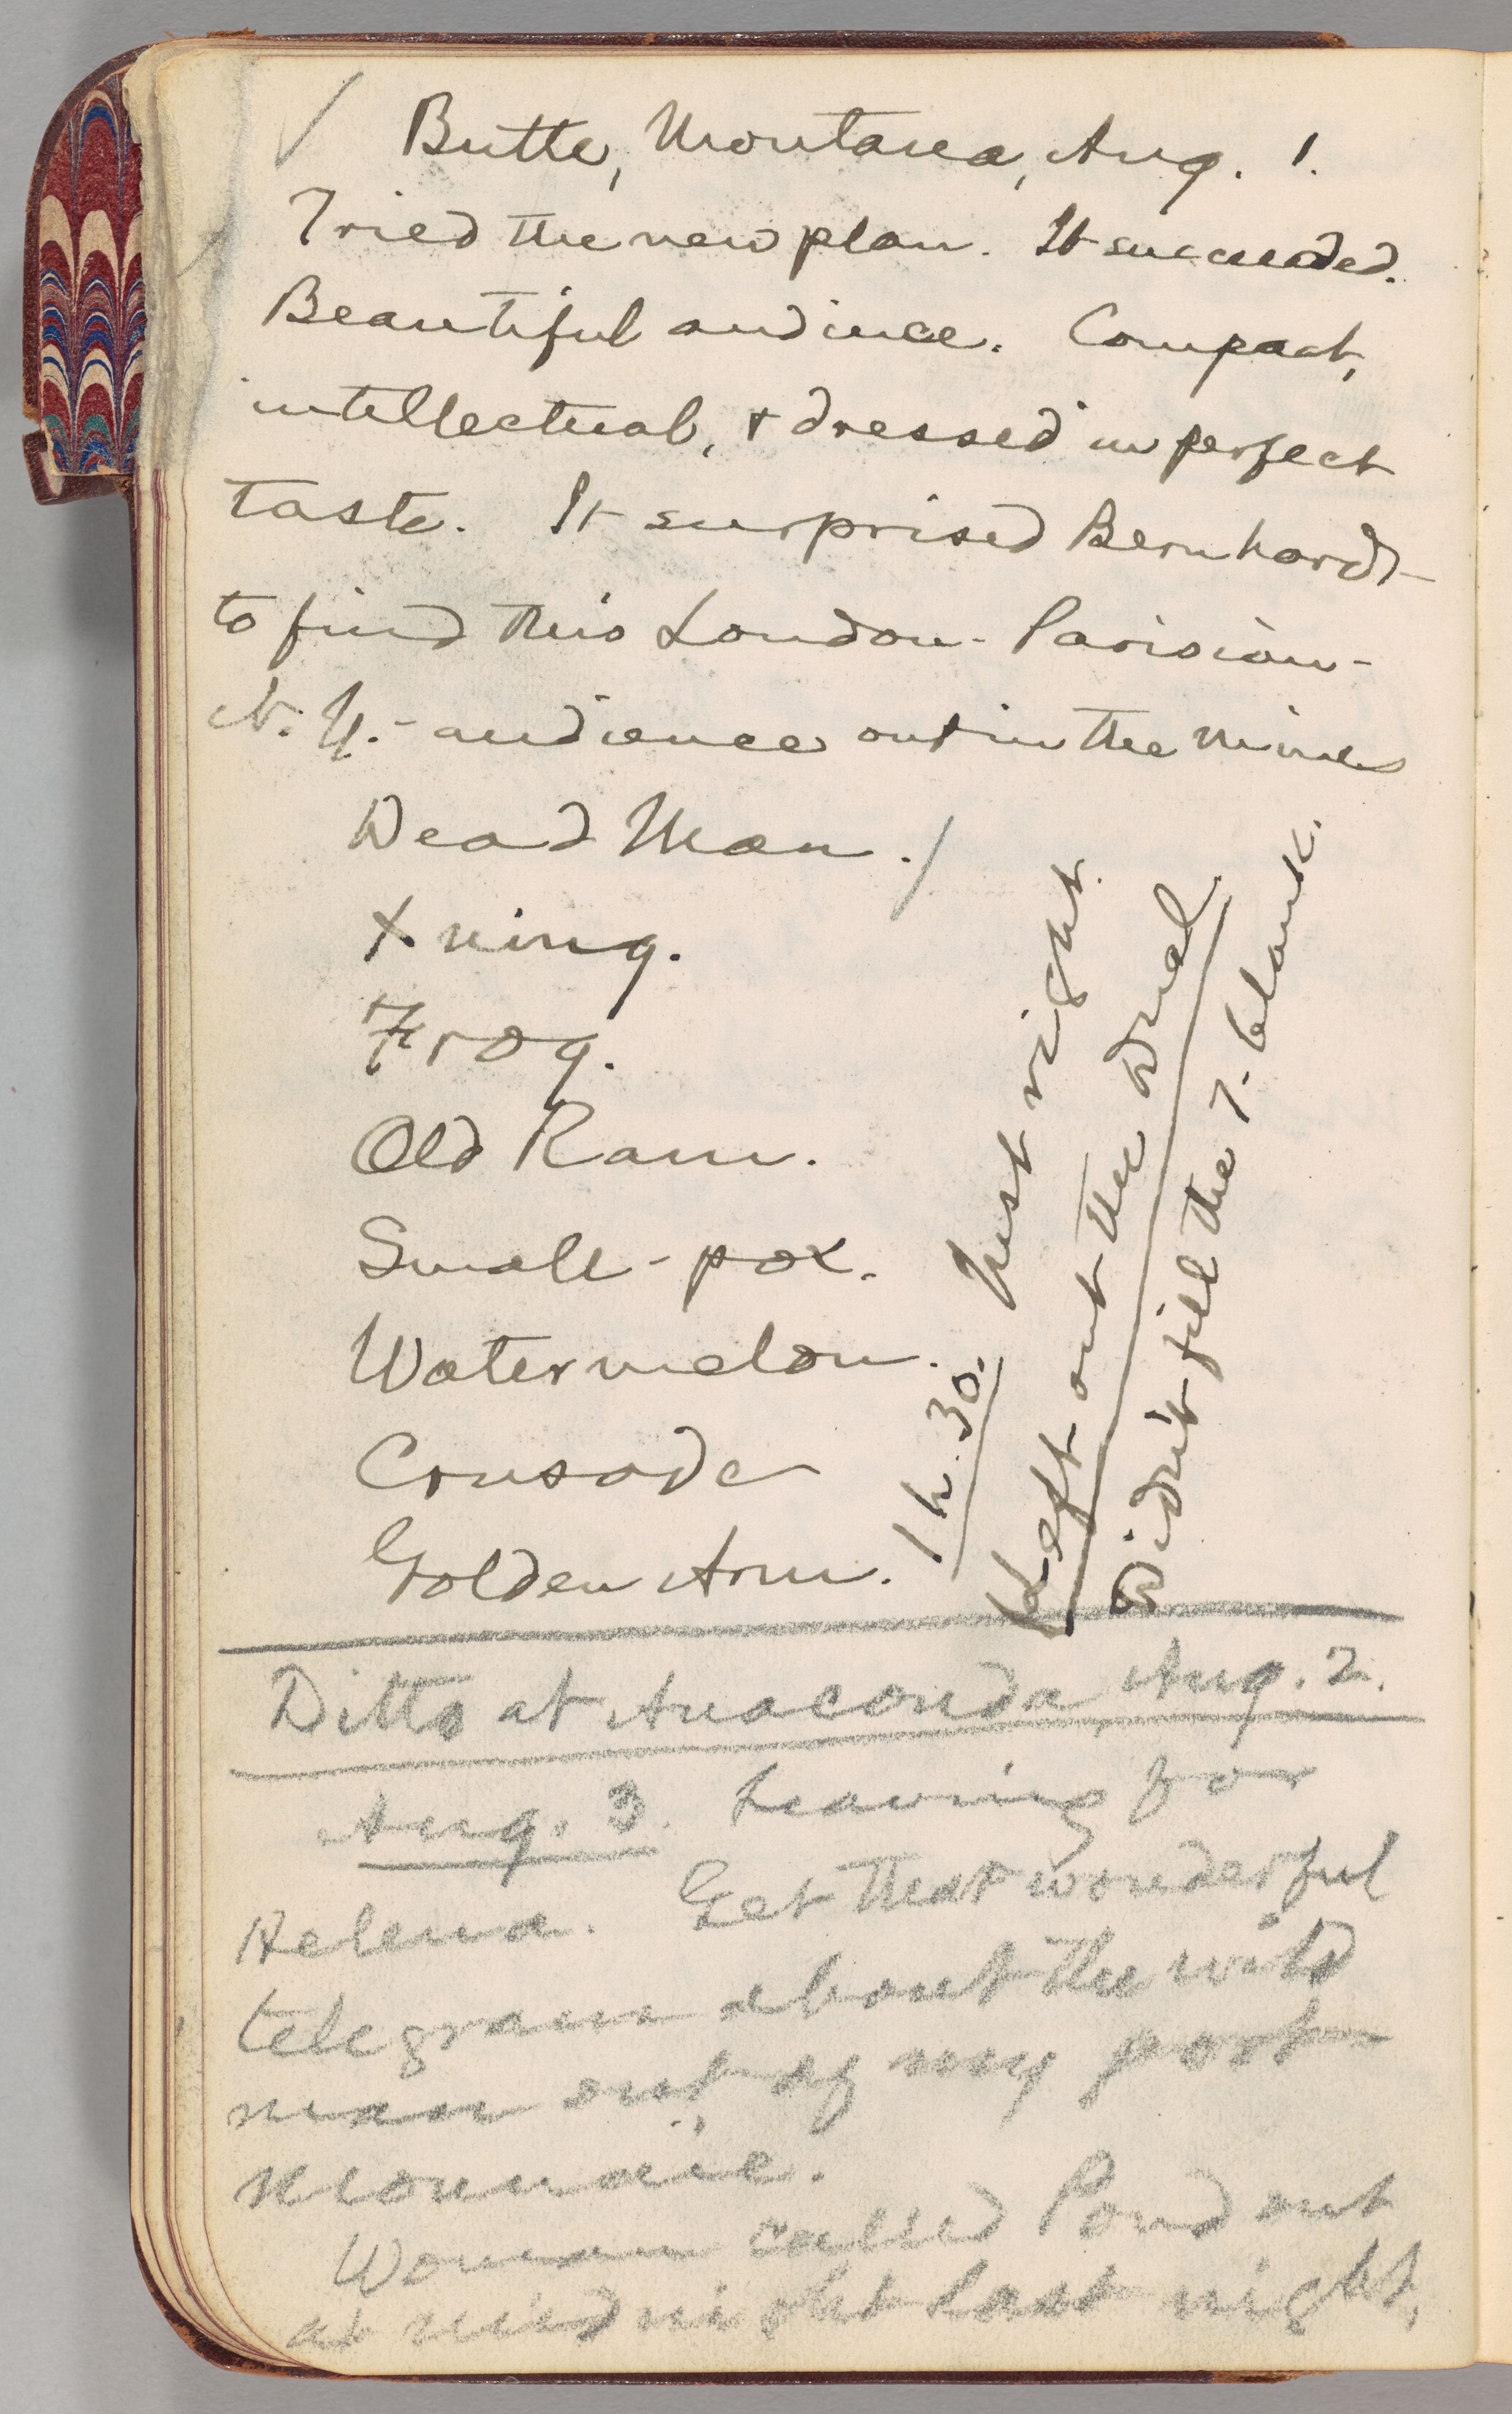 Butte, Montana, Aug. 1.
Tried the new plan. It succeeded.
Beautiful audience. Compact,
intellectual, & dressed in perfect
taste. It surprised Bernhardt
to find this London-Parisian-
N. Y.-audience out in the mines
Dead Man.
Xning.
Frog.
Old Ram.
Small-pox.
Watermelon.
Crusade
Golden Arm.
1 h. 30. Just right.
Left out the Duel.
Didn't fill the 7-blank.
Ditto at Anaconda, Aug. 2.
Aug. 3. Leaving for
Helena. Get that wonderful
telegram about the wild
man out of my port-
monnaie.
Woman called Pond out
at midnight last night,